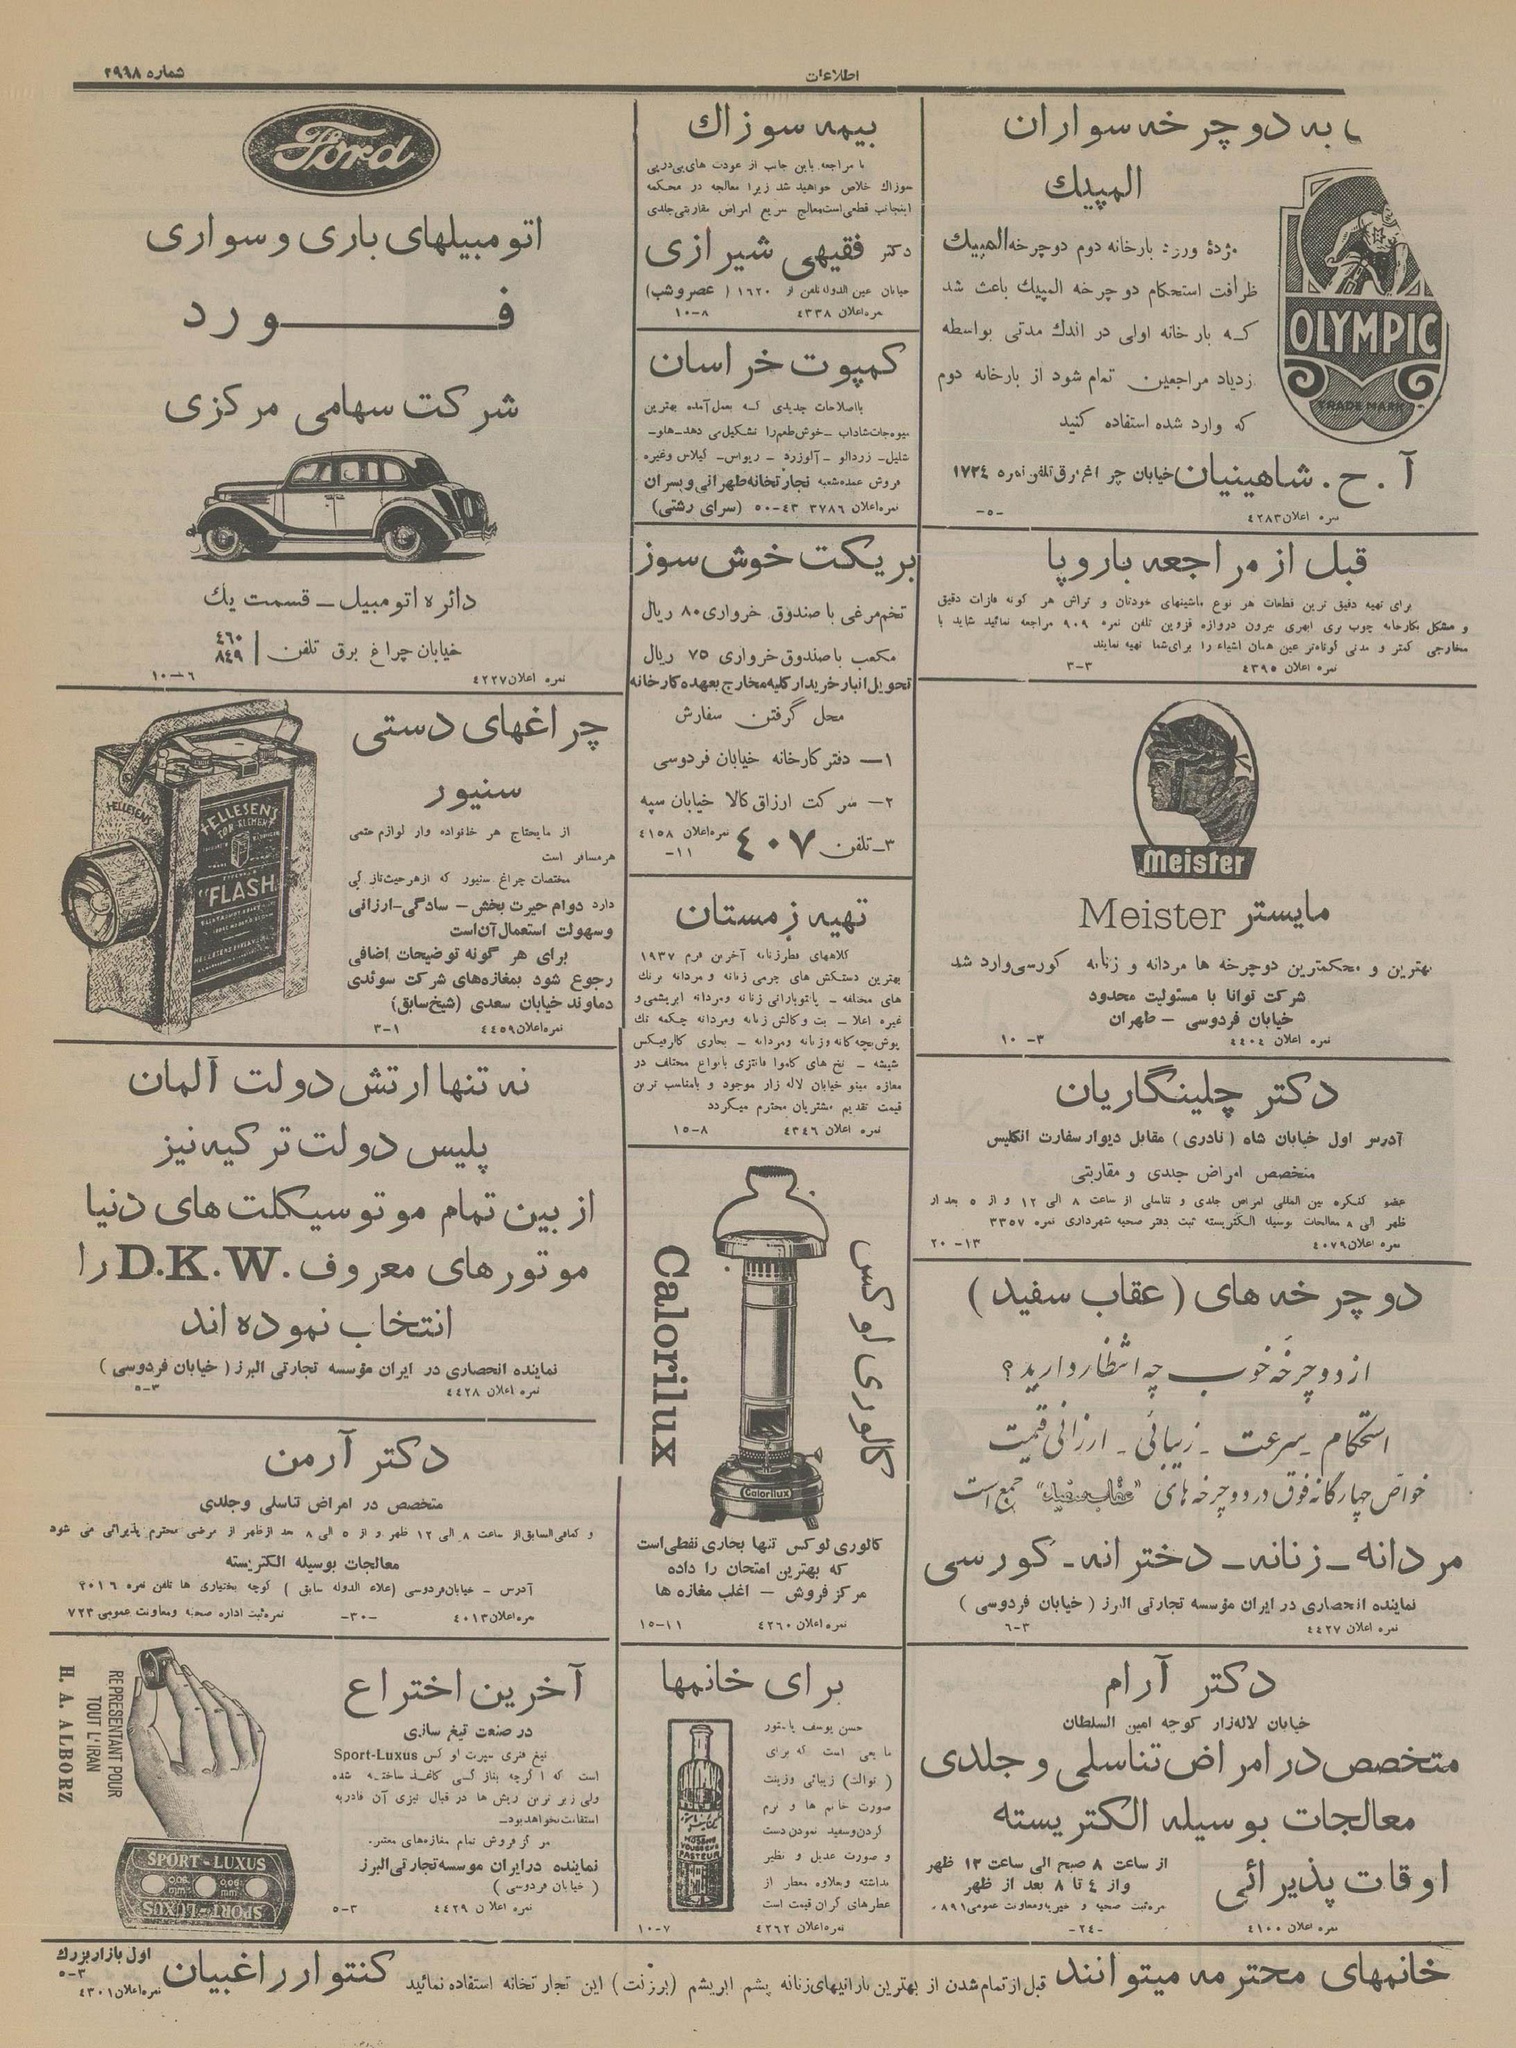 اطلاعات
شماره ۲۹۹۸
به دوچرخه سواران
المپیك
مژدهٔ ورود بارخانه دوم دوچرخه المپیك
ظرافت استحکام دوچرخه المپیك باعث شد
که بارخانه اولی در اندك مدتی بواسطه
زدیاد مراجعین تمام شود از بارخانه دوم
که وارد شده استفاده کنید
OLYMPIC
TRADE MARK
آ . ح . شاهینیان خیابان چراغ برق تلفن نمره ۱۷۲۴
نمره اعلان ۴۲۸۳ -۵-
قبل از مراجعه باروپا
برای تهیه دقیق ترین قطعات هر نوع ماشینهای خودتان و تراش هر گونه فلزات دقیق
و مشکل بکارخانه چوب بری ابهری بیرون دروازه قزوین تلفن نمره ۹۰۹ مراجعه نمائید شاید با
مخارجی کمتر و مدتی کوتاه‌تر عین همان اشیاء را برای شما تهیه نمایند
نمره اعلان ۴۳۹۵ ۳-۳
Meister
مایستر Meister
بهترین و محکمترین دوچرخه ها مردانه و زنانه کورسی وارد شد
شرکت توانا با مسئولیت محدود
خیابان فردوسی - طهران
نمره اعلان ۴۴۰۴ ۳-۱۰
دکتر چلینگاریان
آدرس اول خیابان شاه ( نادری ) مقابل دیوار سفارت انگلیس
متخصص امراض جلدی و مقاربتی
عضو کنگره بین المللی امراض جلدی و تناسلی از ساعت ۸ الی ۱۲ و از ۵ بعد از
ظهر الی ۸ معالجات بوسیله الکتریسته ثبت دفتر صحیه شهرداری نمره ۳۳۵۷
نمره اعلان ۴۰۷۹ ۱۳-۲۰
دوچرخه های ( عقاب سفید )
از دوچرخه خوب چه انتظار دارید؟
استحکام - سرعت - زیبائی - ارزانی قیمت
خواص چهارگانه فوق در دوچرخه های "عقاب سفید" جمع است
مردانه - زنانه - دخترانه - کورسی
نماینده انحصاری در ایران مؤسسه تجارتی البرز ( خیابان فردوسی )
نمره اعلان ۴۴۲۷ ۳-۶
دکتر آرام
خیابان لاله‌زار کوچه امین السلطان
متخصص در امراض تناسلی و جلدی
معالجات بوسیله الکتریسته
اوقات پذیرائی
از ساعت ۸ صبح الی ساعت ۱۲ ظهر
و از ۴ تا ۸ بعد از ظهر
نمره ثبت صحیه و خیریه و معاونت عمومی ۸۹۱
نمره اعلان ۴۱۰۰ -۲۴-
بیمه سوزاك
با مراجعه باین جانب از عودت های پی در پی
سوزاك خلاص خواهید شد زیرا معالجه در محکمه
اینجانب قطعی است معالج سریع امراض مقاربتی جلدی
دکتر فقیهی شیرازی
خیابان عین الدوله تلفن از ۱۶۲۰ ( عصر و شب )
نمره اعلان ۴۳۳۸ ۸-۱۰
کمپوت خراسان
بااصلاحات جدیدی که بعمل آمده بهترین
میوه‌جات شاداب - خوش طعم را تشکیل می دهد - هلو -
شلیل - زردالو - آلوزرد - ریواس - گیلاس وغیره
فروش عمده شعبه تجارتخانه طهرانی و پسران
نمره اعلان ۳۷۸۶ ۴۳-۵۰ (سرای رشتی)
بریکت خوش سوز
تخم مرغی با صندوق خرواری ۸۰ ریال
مکعب با صندوق خرواری ۷۵ ریال
تحویل انبار خریدار کلیه مخارج بعهده کارخانه
محل گرفتن سفارش
۱- دفتر کارخانه خیابان فردوسی
۲- شرکت ارزاق کالا خیابان سپه
۳- تلفن ۴۰۷ نمره اعلان ۴۱۵۸
۱۱-
تهیه زمستان
کلاههای فطر زنانه آخرین فرم ۱۹۳۷
بهترین دستکش های چرمی زنانه و مردانه برنك
های مختلفه - پالتو بارانی زنانه ومردانه ابریشمی و
غیره اعلا - بت و کالش زنانه ومردانه چکمه تك
پوش بچه گانه وزنانه ومردانه - بخاری کالرفیکس
شیشه - نخ های کاموا فانتزی بانواع مختلف در
مغازه مینو خیابان لاله زار موجود و بامناسب ترین
قیمت تقدیم مشتریان محترم میگردد
نمره اعلان ۴۳۴۶ ۸-۱۵
کالوری لوکس
Calorilux
Calorilux
کالوری لوکس تنها بخاری نفطی است
که بهترین امتحان را داده
مرکز فروش - اغلب مغازه ها
نمره اعلان ۴۲۶۰ ۱۱-۱۵
برای خانمها
حسن یوسف پاستور
مایعی است که برای
( توالت ) زیبائی وزینت
صورت خانم ها و نرم
کردن وسفید نمودن دست
و صورت عدیل و نظیر
نداشته وبعلاوه معطر از
عطرهای گران قیمت است
HOSSNE
YOUSSEFE
PASTEUR
نمره اعلان ۴۲۶۲ ۷-۱۰
Ford
اتومبیلهای باری و سواری
فورد
شرکت سهامی مرکزی
دائره اتومبیل - قسمت یك
خیابان چراغ برق تلفن ۴۶۰ ۸۴۹
نمره اعلان ۴۲۲۷ ۶-۱۰
چراغهای دستی
سنیور
از مایحتاج هر خانواده واز لوازم حتمی
هر مسافر است
مختصات چراغ سنیور که از هر حیث تازگی
دارد دوام حیرت بخش - سادگی - ارزانی
و سهولت استعمال آن است
برای هر گونه توضیحات اضافی
رجوع شود بمغازه‌های شرکت سوئدی
دماوند خیابان سعدی (شیخ سابق)
نمره اعلان ۴۴۵۹ ۱-۳
HELLESENS
HELLESENS
"FLASH"
نه تنها ارتش دولت آلمان
پلیس دولت ترکیه نیز
از بین تمام موتوسیکلت های دنیا
موتورهای معروف D.K.W. را
انتخاب نموده اند
نماینده انحصاری در ایران مؤسسه تجارتی البرز ( خیابان فردوسی )
نمره اعلان ۴۴۲۸ ۳-۵
دکتر آرمن
متخصص در امراض تناسلی وجلدی
و کمافی السابق از ساعت ۸ الی ۱۲ ظهر و از ۵ الی ۸ بعد از ظهر از مرضی محترم پذیرائی می شود
معالجات بوسیله الکتریسته
آدرس - خیابان فردوسی (علاء الدوله سابق ) کوچه بختیاری ها تلفن نمره ۲۰۱۶
نمره اعلان ۴۰۱۳ -۳۰- نمره ثبت اداره صحیه ومعاونت عمومی ۷۲۳
آخرین اختراع
در صنعت تیغ سازی
تیغ فنری سپرت لوکس Sport-Luxus
است که اگرچه بنازکی کاغذ ساخته شده
ولی زبر ترین ریش ها در قبال تیزی آن قادر به
استقامت نخواهد بود -
مرکز فروش تمام مغازه‌های معتبر.
نماینده در ایران موسسه تجارتی البرز
( خیابان فردوسی )
نمره اعلان ۴۴۲۹ ۳-۵
REPRESENTANT POUR
TOUT L'IRAN
H. A. ALBORZ
SPORT-LUXUS
0,06 mm 0,06 mm
SPORT-LUXUS
خانمهای محترمه میتوانند قبل از تمام شدن از بهترین بارانیهای زنانه پشم ابریشم (برزنت) این تجارتخانه استفاده نمائید کنتوار راغبیان اول بازار بزرك
۳-۵
نمره اعلان ۴۳۰۱